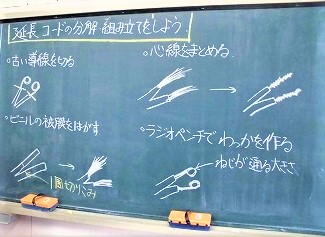 延長コードの分解・組み立てをしよう
○古い導線を切る
○ビニルの被膜をはがす
1周切りこみ
○心線をまとめる
○ラジオペンチでわっかを作る
ねじが通る大きさ